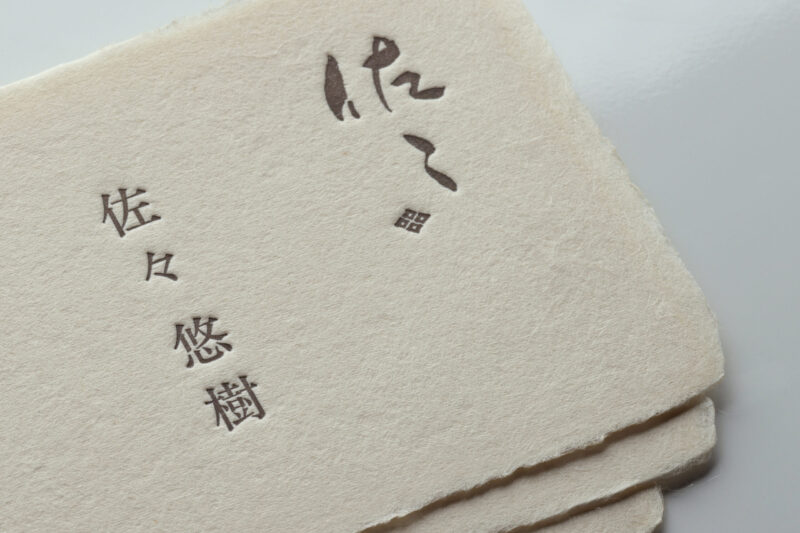 佐々
佐々悠樹